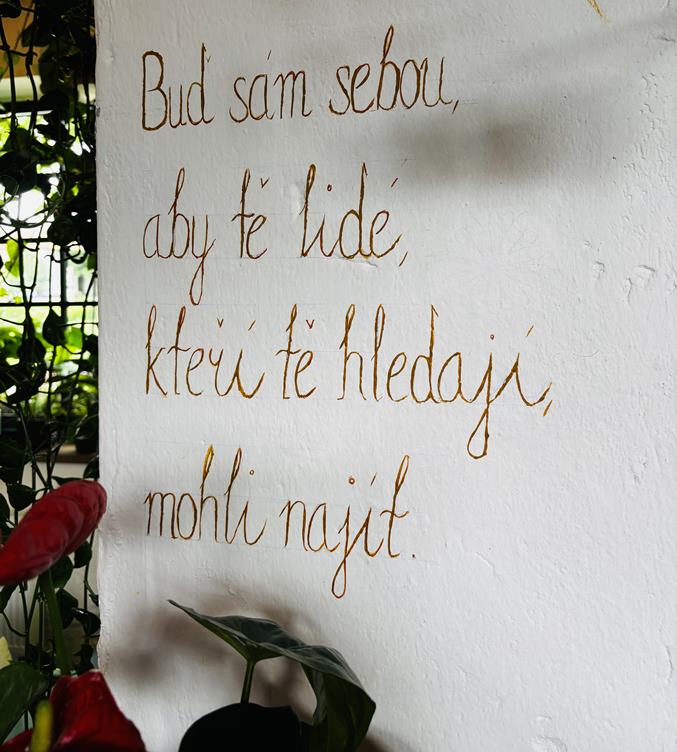 Buď sám sebou,
aby tě lidé,
kteří tě hledají,
mohli najít.